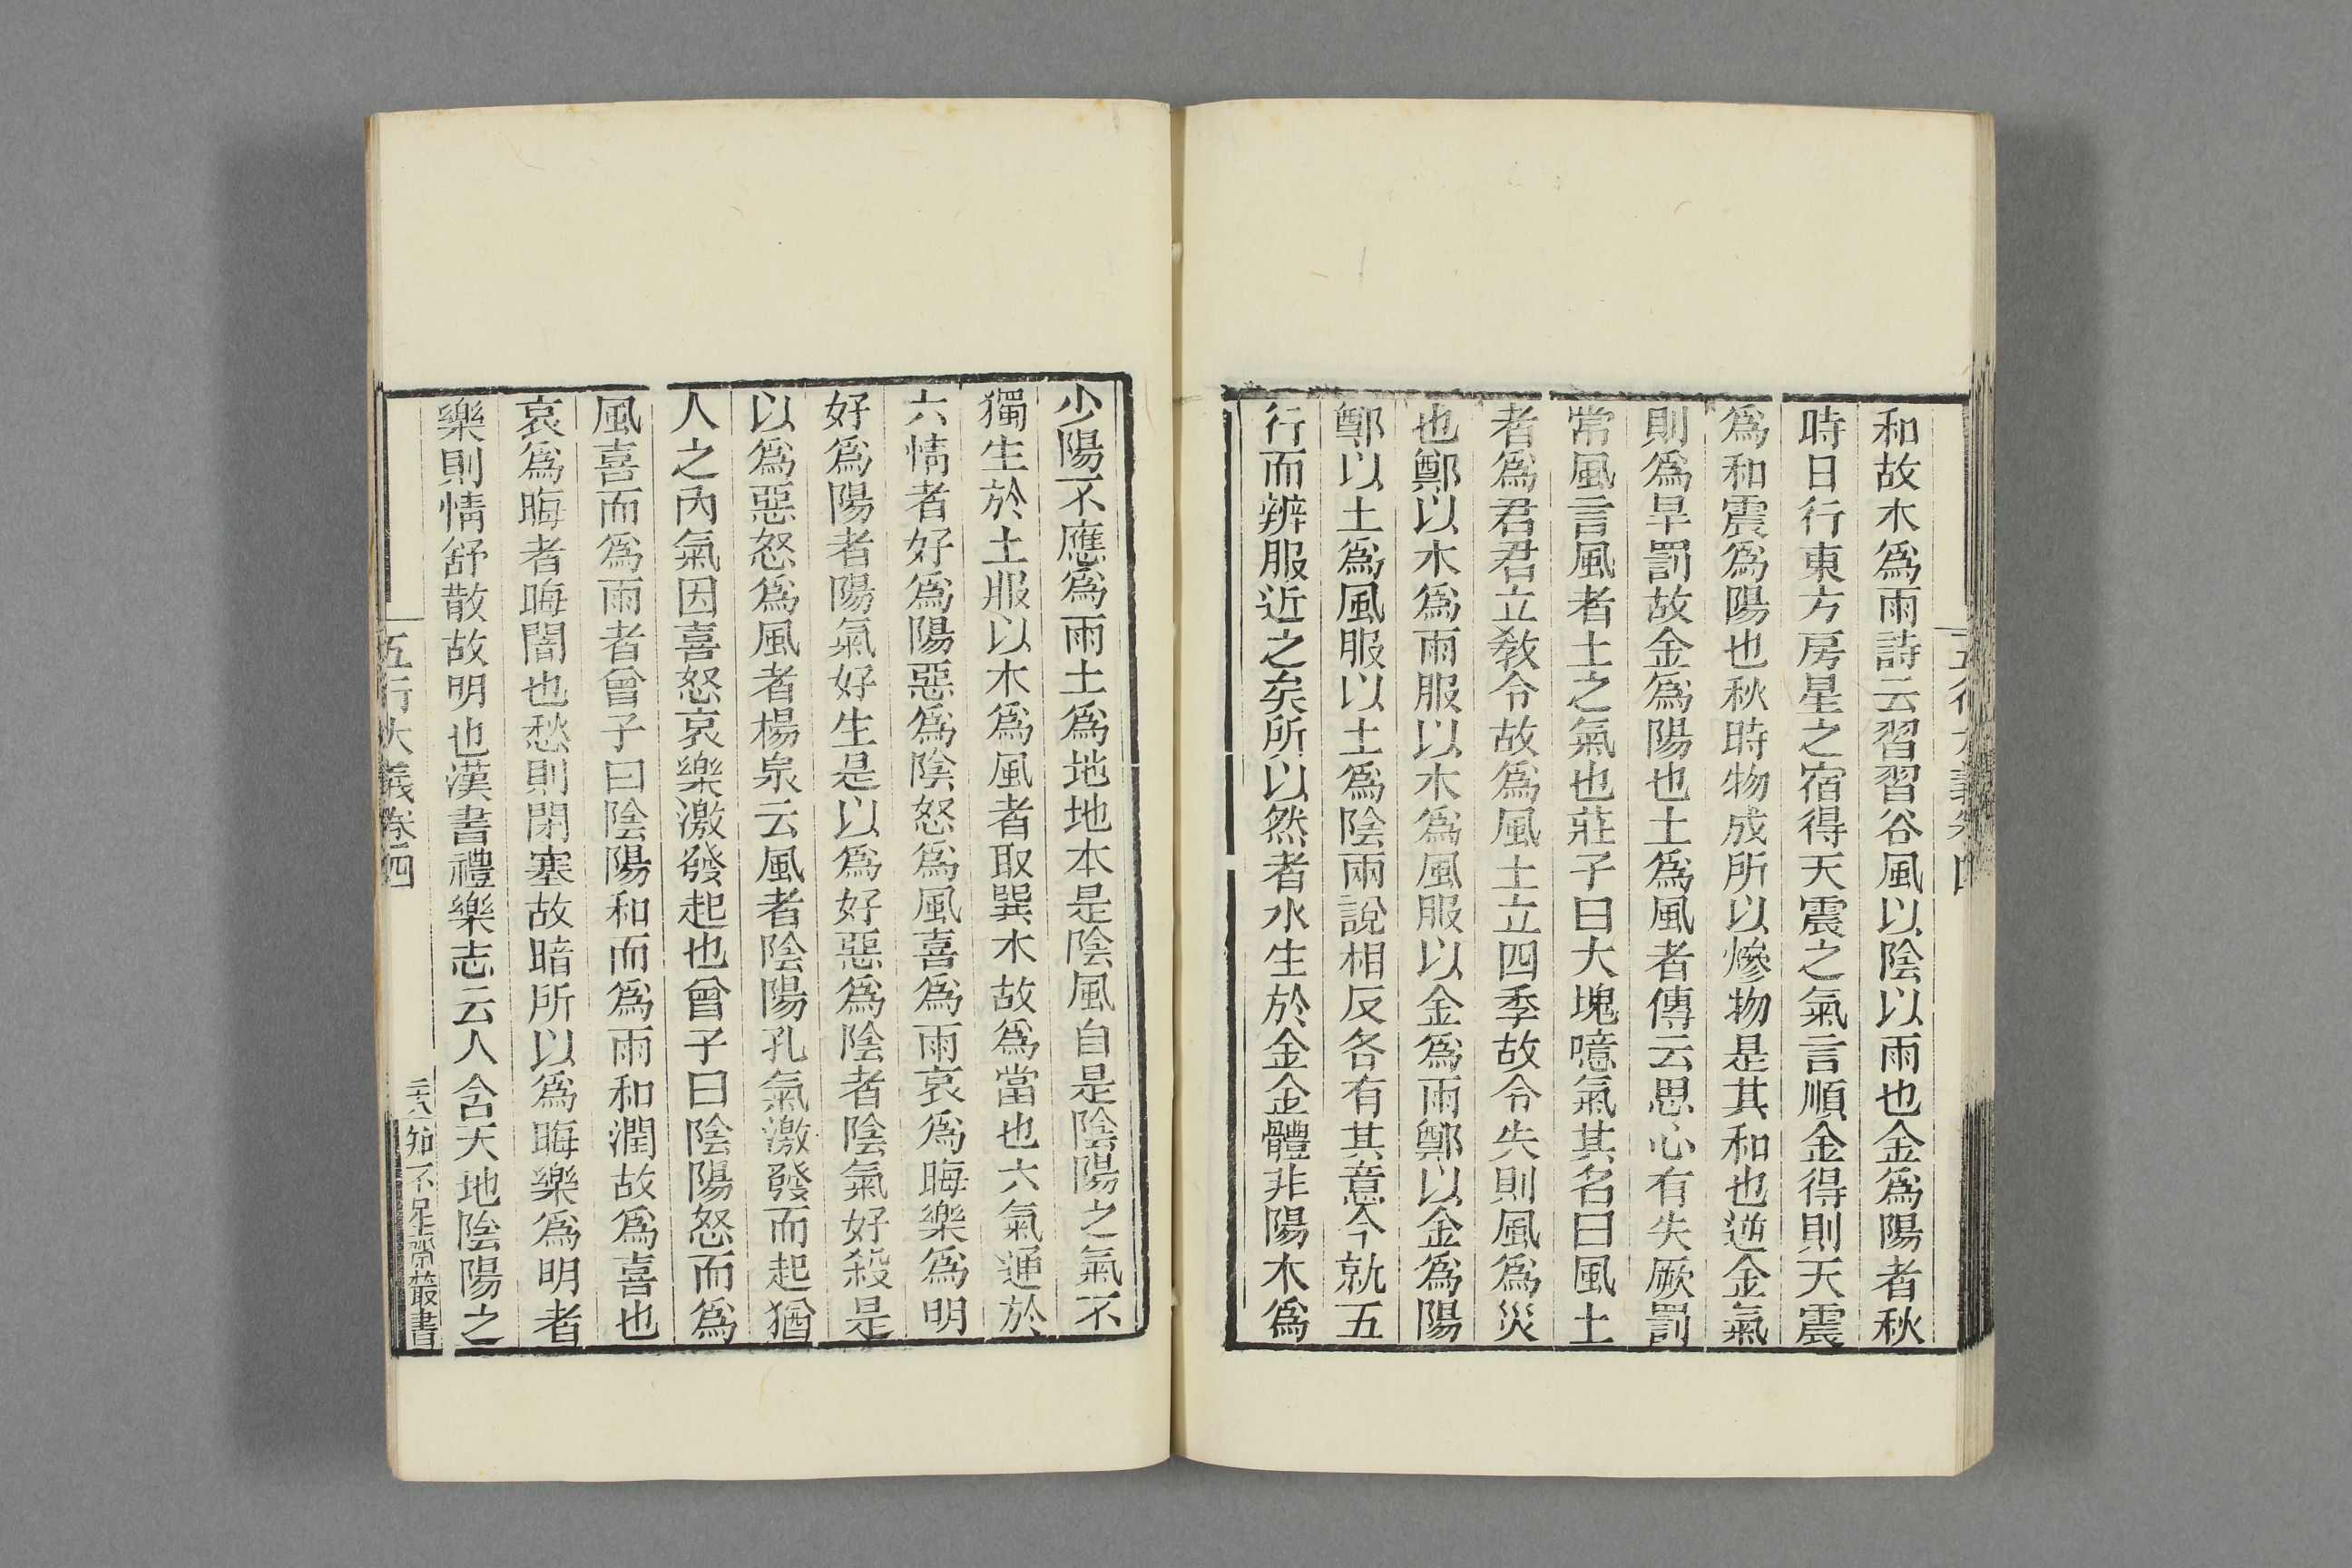 和故木爲雨詩云習習谷風以陰以雨也金爲陽者秋
時日行東方房星之宿得天震之氣言順金得則天震
爲和震爲陽也秋時物成所以慘物是其和也逆金氣
則爲旱罰故金爲陽也土爲風者傳云思心有失厥罰
常風言風者土之氣也莊子曰大塊噫氣其名曰風土
者爲君君立敎令故爲風土立四季故令失則風爲災
也鄭以木爲雨服以木爲風服以金爲雨鄭以金爲陽
鄭以土爲風服以土爲陰兩說相反各有其意今就五
行而辨服近之矣所以然者水生於金金體非陽木爲
少陽不應爲雨土爲地地本是陰風自是陰陽之氣不
獨生於土服以木爲風者取巽木故爲當也六氣通於
六情者好爲陽惡爲陰怒爲風喜爲雨哀爲晦樂爲明
好爲陽者陽氣好生是以爲好惡爲陰者陰氣好殺是
以爲惡怒爲風者楊泉云風者陰陽孔氣激發而起猶
人之內氣因喜怒哀樂激發起也曾子曰陰陽怒而爲
風喜而爲雨者曾子曰陰陽和而爲雨和潤故爲喜也
哀爲晦者晦闇也愁則閉塞故暗所以爲晦樂爲明者
樂則情舒散故明也漢書禮樂志云人含天地陰陽之
五行大義卷四
知不足齋叢書